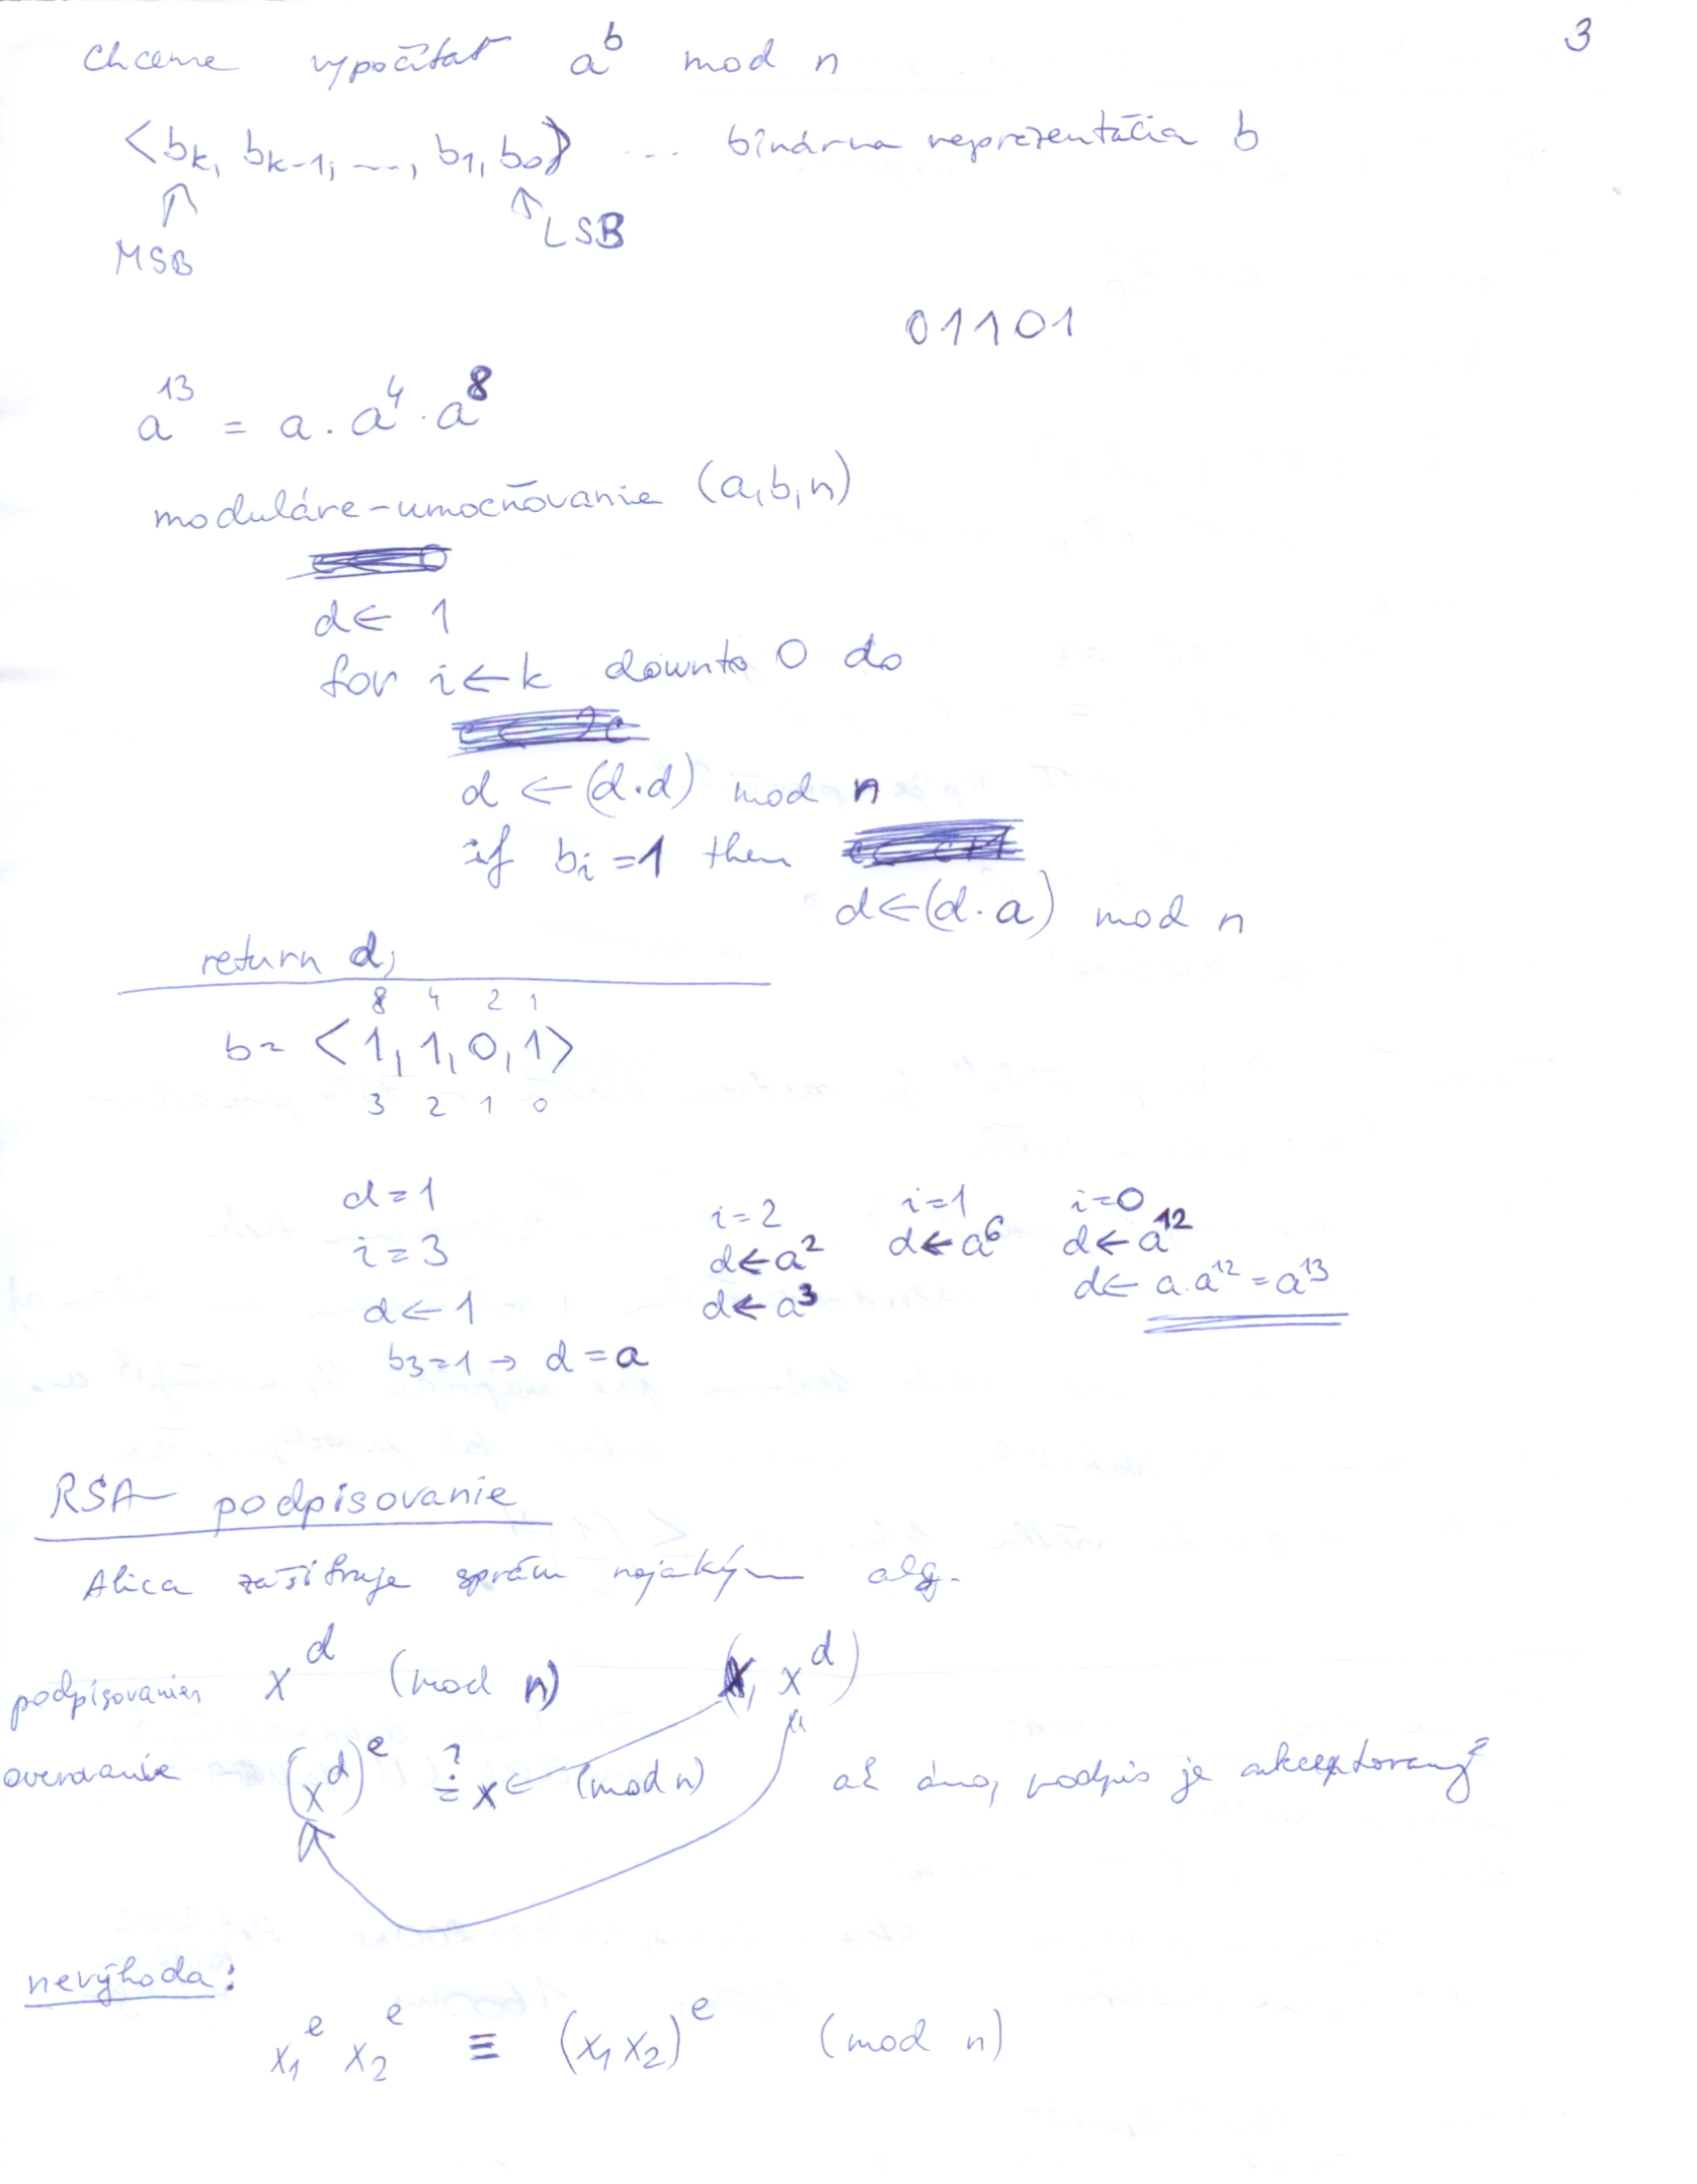 3
Chceme vypočítať a^b mod n
<b_k, b_k-1, ..., b_1, b_0> ... binárna reprezentácia b
MSB LSB
01101
a^13 = a . a^4 . a^8
moduláre-umocňovanie (a,b,n)
d ← 1
for i ← k downto 0 do
d ← (d.d) mod n
if b_i = 1 then
d ← (d.a) mod n
return d;
8 4 2 1
b = <1, 1, 0, 1>
3 2 1 0
d = 1
i = 3
d ← 1
b_3 = 1 → d = a
i = 2
d ← a^2
d ← a^3
i = 1
d ← a^6
i = 0
d ← a^12
d ← a.a^12 = a^13
RSA - podpisovanie
Alica zašifruje správu nejakým alg.
x^d (mod n) (x, x^d)
overovanie (x^d)^e ≟ x (mod n) ak áno, podpis je akceptovaný
nevýhoda:
x_1^e x_2^e ≡ (x_1 x_2)^e (mod n)